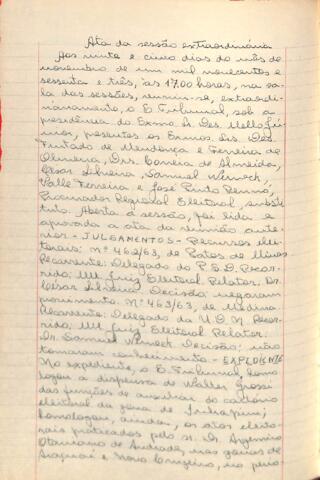 Ata da sessão extraordinária
Aos vinte e cinco dias do mês de
novembro de um mil novecentos e
sessenta e três, às 17,00 horas, na sa-
la das sessões, reuniu-se, extraordi-
nariamente, o E. Tribunal, sob a
presidência do Exmo. Sr. Des. Mello Jú-
nior, presentes os Exmos. Srs. Des.
Furtado de Mendonça e Ferreira de
Oliveira, Drs. Correia de Almeida,
César Silveira, Samuel Werneck,
Valle Ferreira e José Pinto Renno,
Procurador Regional Eleitoral, substi-
tuto. Aberta a sessão, foi lida e
aprovada a ata da reunião ante-
rior - JULGAMENTOS - Recursos elei-
torais: nº 462/63, de Patos de Minas
Recorrente: Delegado do P.S.D. Recor-
rido: MM. Juiz Eleitoral Relator: Dr.
César Silveira Decisão: negaram
provimento. Nº 463/63, de Medina
Recorrente: Delegado da U.D.N. Recor-
rido: MM. Juiz Eleitoral Relator:
Dr. Samuel Werneck Decisão: não
tomaram conhecimento - EXPEDIENTE
No expediente, o E. Tribunal, homo-
logou a dispensa de Walter Grossi
das funções de auxiliar do cartório
eleitoral da zona de
homologou, ainda, os atos eleito-
rais praticados pelo Dr. Argemiro
Otaviano de Andrade, nas zonas de
Araguari e Novo Cruzeiro, no perío-